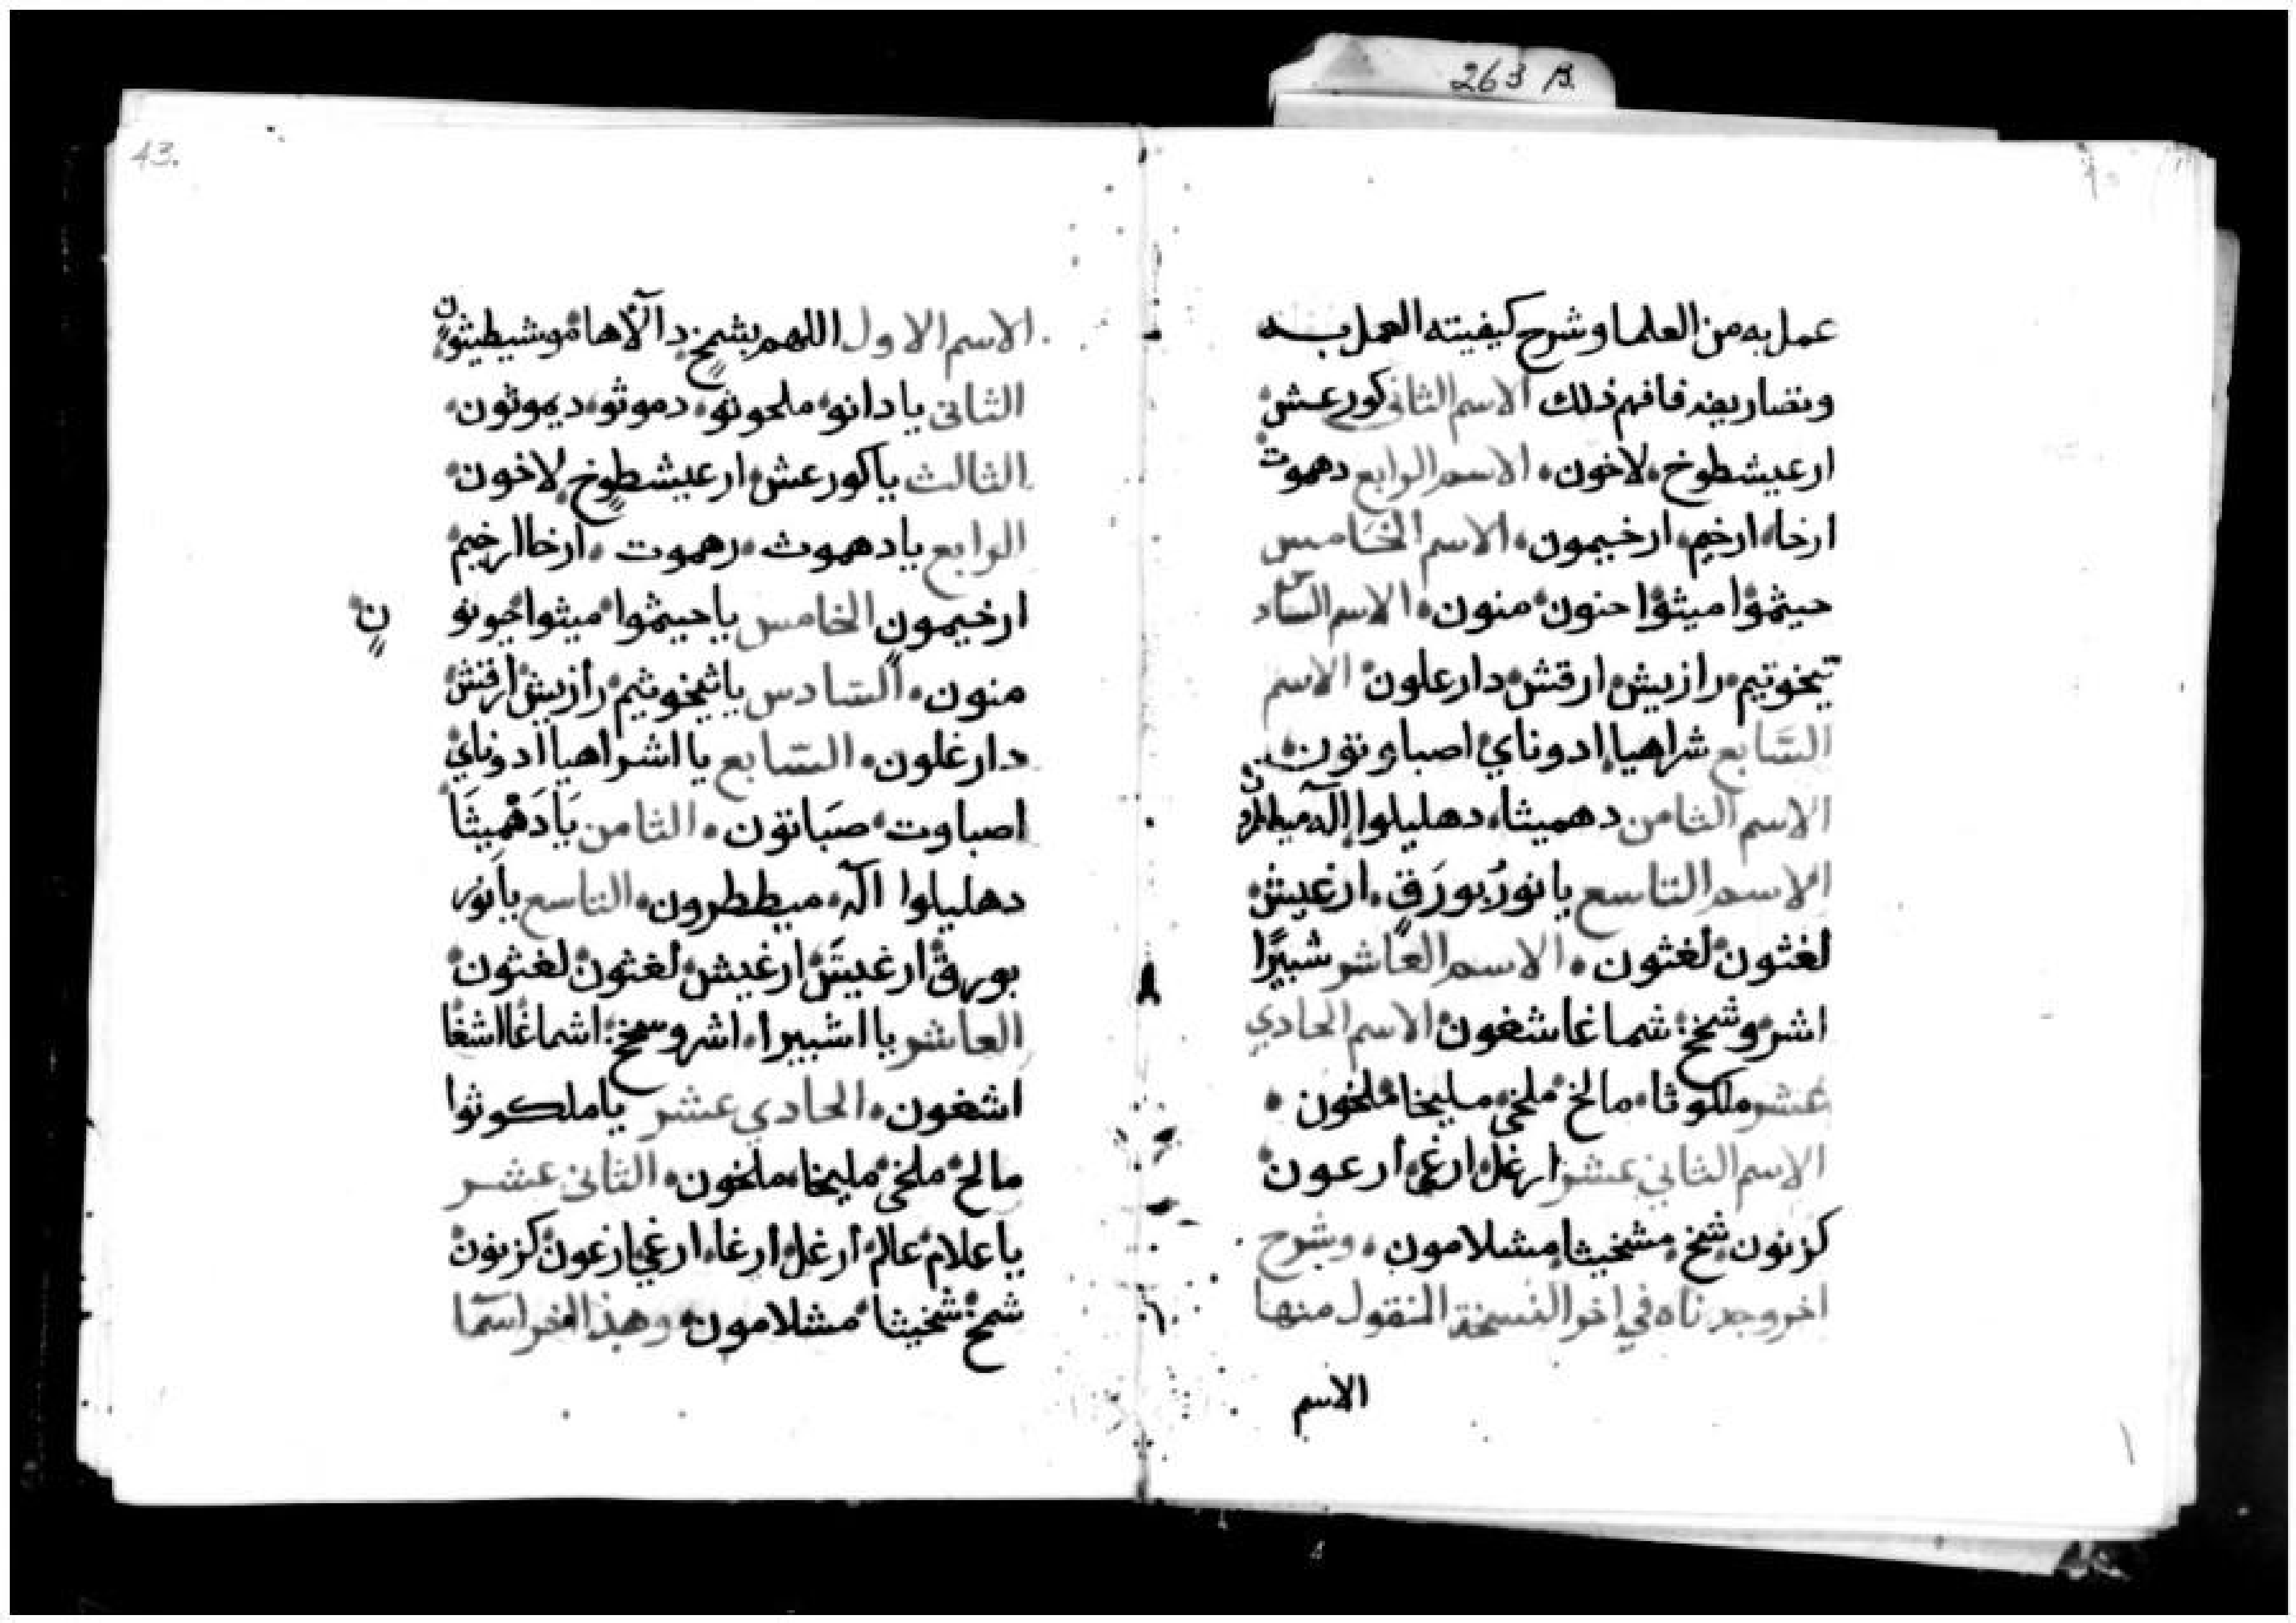 263 B.
عمل به من العلما وشرح كيفيته العمل به
وتصاريفه فافهم ذلك الاسم الثاني كورعش
ارعيشطوخ لاخون الاسم الرابع دهموت
ارخا ارخيم ارخيمون الاسم الخامس
حيثموا ميثوا حنون منون الاسم السادس
تيخوتيم رازيش ارقش دارعلون الاسم
السابع شراهيا ادوناي اصباوتون
الاسم الثامن دهميثا دهليلوا اله ميططرون
الاسم التاسع يا نور بورق ارغيش
لغثون لغثون الاسم العاشر شبيرا
اشر وشمخ شماغا شغون الاسم الحادي
عشر ملكوثا مالخ ملخي مليخا ملخون
الاسم الثاني عشر ارغل ارغي ارعون
كزنون شمخ مشخيثا مشلامون وشرح
اخر وجدناه في اخر النسخة المنقول منها
الاسم
43.
الاسم الاول اللهم بشمخ دالاهاموشيطيثون
الثاني يا دانو ملحوثو دموثو ديموثون
الثالث يا كورعش ارعيشطوخ لاخون
الرابع يا دهموث رهموت ارخا ارخيم
ارخيمون الخامس يا حيثموا ميثوا حونو ن
منون السادس يا ثيخوثيم رازيش ارقش
دارغلون السابع يا اشراهيا ادوناي
اصباوت صَباتون الثامن يَا دَهْمِيثَا
دهليلوا اله ميططرون التاسع يا نور
بورق ارغيش ارغيش لغثون لغثون
العاشر يا اشبيرا اشر وسمخ اشماغا اشغا
اشغون الحادي عشر يا ملكوثوا
مالخ ملخي مليخا ملخون الثاني عشر
يا علام عالم ارغل ارغا ارغي ارغون كزنون
شمخ شخيثا مشلامون وهذا اخر اسما